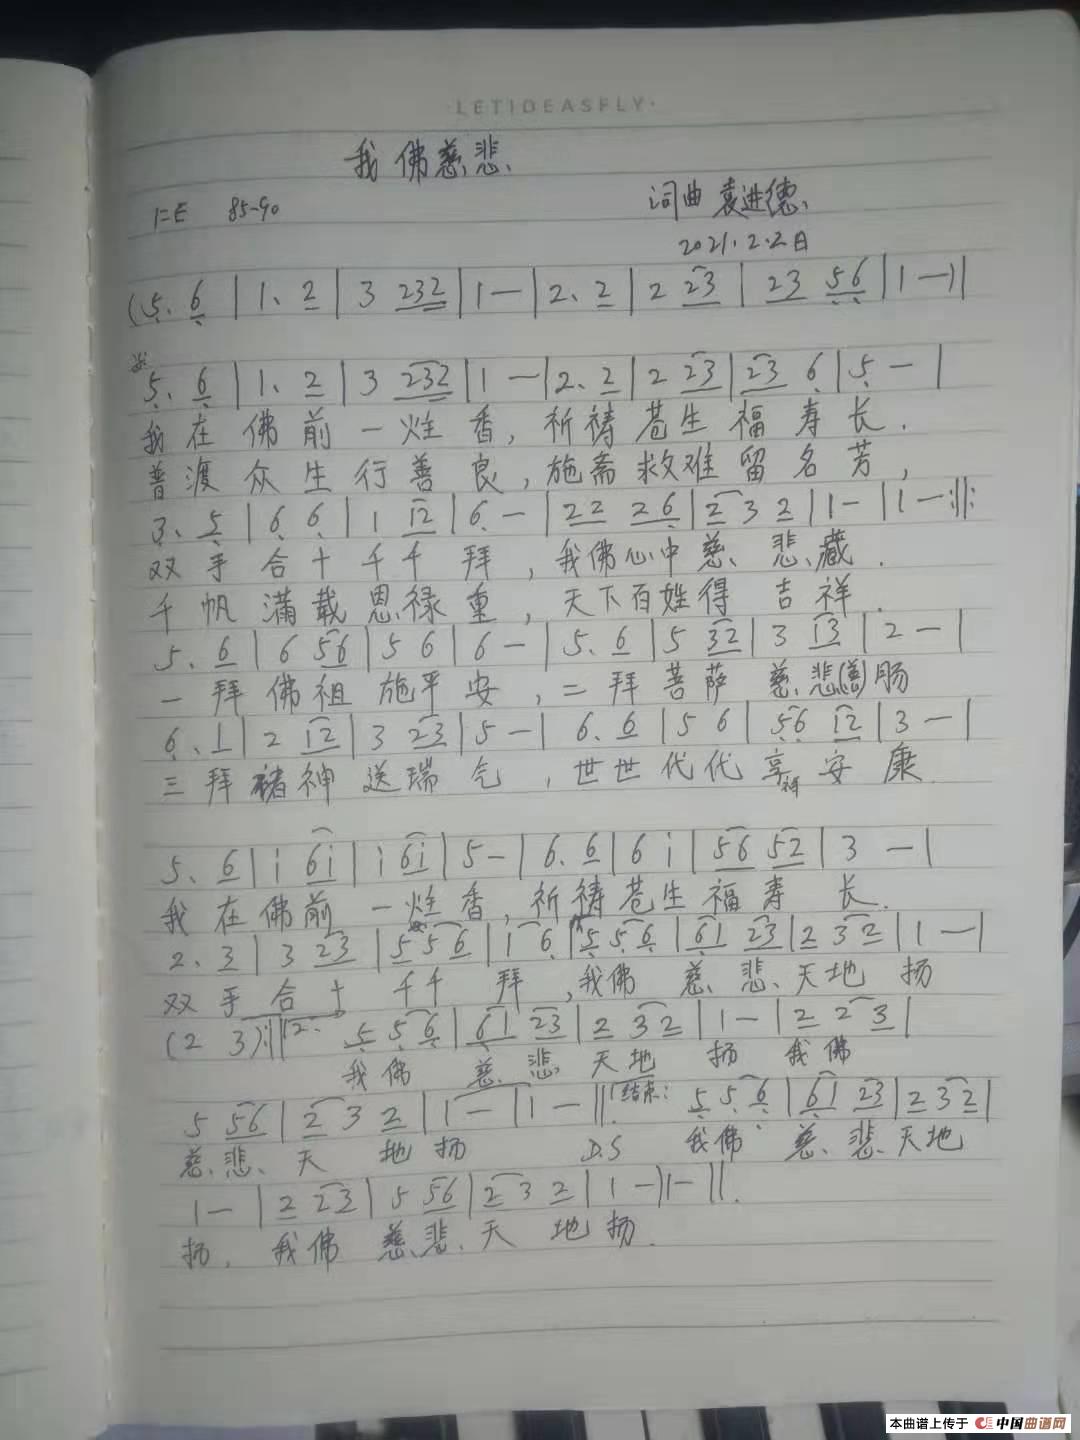 ·LETIDEASFLY·
我佛慈悲
1=E 85-90 词曲 袁进德
2021.2.2日
(5. 6 | 1. 2 | 3 232 | 1 — | 2. 2 | 2 23 | 23 56 | 1 —) |
5. 6 | 1. 2 | 3 232 | 1 — | 2. 2 | 2 23 | 23 6 | 5 — |
我在佛前一炷香,祈祷苍生福寿长.
普渡众生行善良,施斋救难留名芳,
3. 5 | 6 6 | 1 12 | 6 — | 22 26 | 2 3 2 | 1 — | 1 — :||:
双手合十千千拜,我佛心中慈悲藏.
千帆满载恩禄重,天下百姓得吉祥.
5. 6 | 6 56 | 5 6 | 6 — | 5. 6 | 5 32 | 3 13 | 2 — |
一拜佛祖施平安,二拜菩萨慈悲(善)肠
6. 1 | 2 12 | 3 23 | 5 — | 6. 6 | 5 6 | 56 12 | 3 — |
三拜诸神送瑞气,世世代代享祥安康.
5. 6 | i 6i | i 6i | 5 — | 6. 6 | 6 i | 56 52 | 3 — |
我在佛前一炷香,祈祷苍生福寿长.
2. 3 | 3 23 | 5 5 6 | 1 6 | 5 5 6 | 61 23 | 2 3 2 | 1 — |
双手合十千千拜,我佛慈悲天地扬
(2 3) :|| 2. 5 5 6 | 61 23 | 2 3 2 | 1 — | 2 2 3 |
我佛慈悲天地扬我佛
5 56 | 2 3 2 | 1 — | 1 — || 结束: 5 5 6 | 61 23 | 2 3 2 |
慈悲天地扬 D.S 我佛慈悲天地
1 — | 2 23 | 5 56 | 2 3 2 | 1 — | 1 — ||.
扬,我佛慈悲天地扬.
本曲谱上传于 中国曲谱网